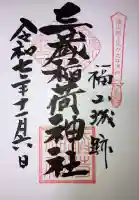 福山城跡
三蔵稲荷神社
令和七年十一月六日